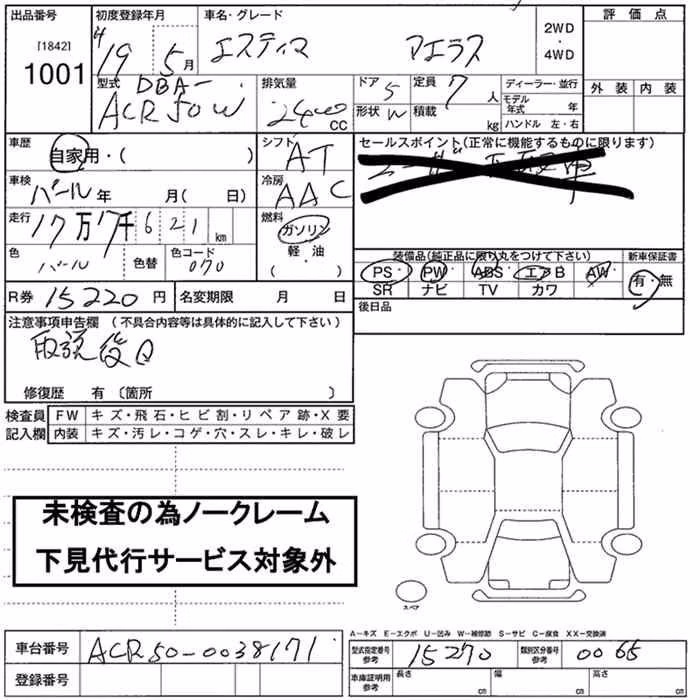 出品番号 初度登録年月 車名・グレード 2WD 評価点
[1842] H19 5月 エスティマ アエラス ・
1001 4WD
型式 DBA- 排気量 ドア 5 定員 7人 ディーラー・並行 外装 内装
ACR50W 2400 CC 形状 W 積載 kg モデル年式 年
ハンドル 左・右
車歴 自家用・( ) シフト AT セールスポイント(正常に機能するものに限ります)
車検 パール 年 月( 日) 冷房 AAC
走行 17万17千621 km 燃料 ガソリン
軽・油
( )
色 パール 色替 色コード 070
装備品(純正品に限り丸をつけて下さい) 新車保証書
PS・ PW ABS エアB AW 有・無
SR ナビ TV カワ
R券 15220円 名変期限 月 日 後日品
注意事項申告欄 (不具合内容等は具体的に記入して下さい)
取説後日
修復歴 有 〔箇所 〕
検査員 FW キズ・飛石・ヒビ割・リペア跡・X要
記入欄 内装 キズ・汚レ・コゲ・穴・スレ・キレ・破レ
未検査の為ノークレーム
下見代行サービス対象外
スペア
A−キズ E−エクボ U−凹み W−補修跡 S−サビ C−腐食 XX−交換済
車台番号 ACR50-0038171 型式指定番号 参考 15270 類別区分番号 参考 0065
登録番号 車庫証明用 参考 長さ cm 幅 cm 高さ cm